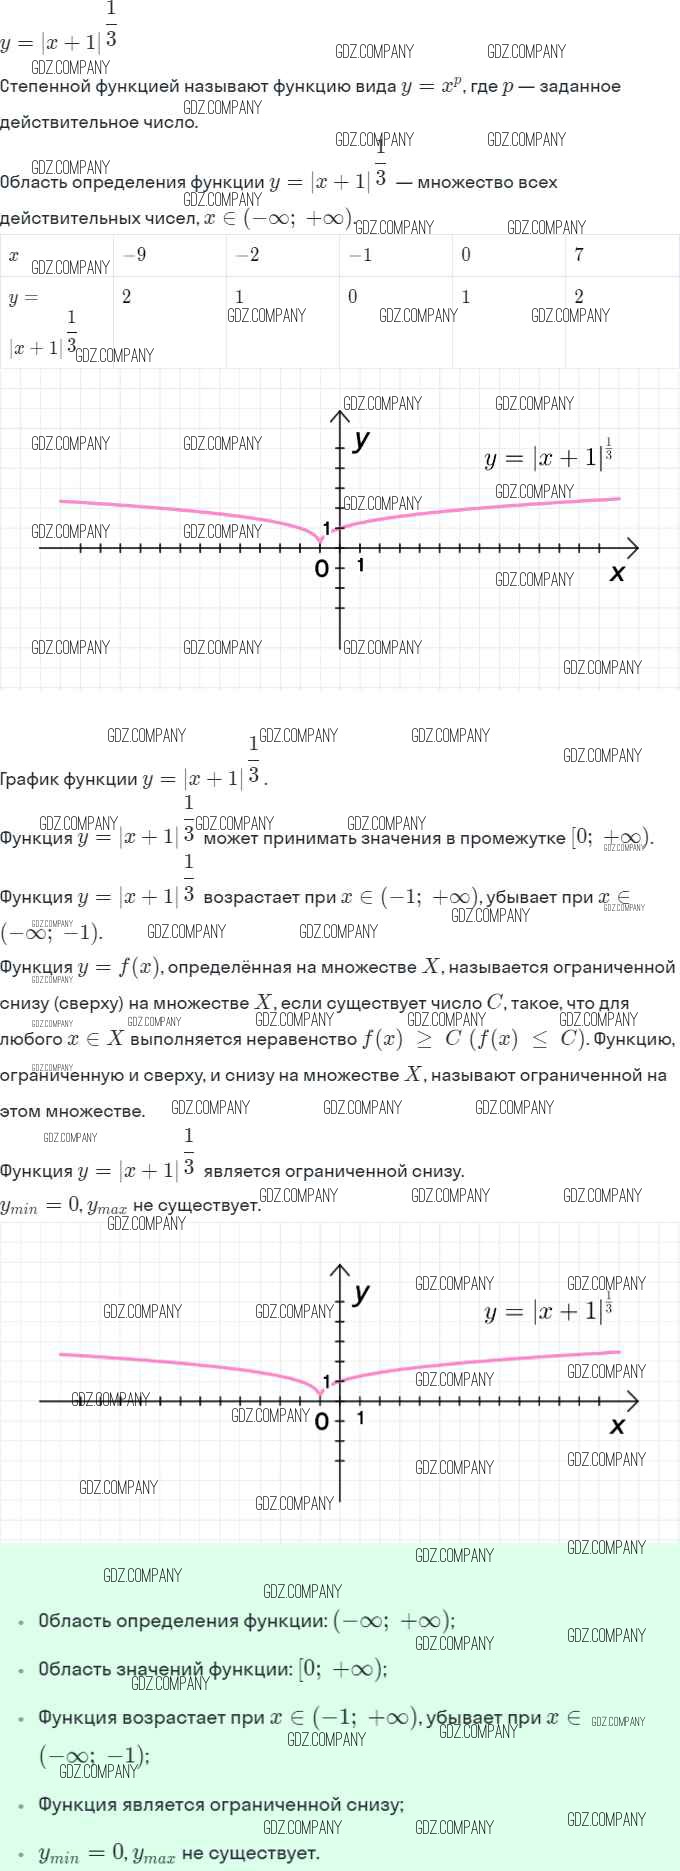 y = |x + 1|^{1/3}
Степенной функцией называют функцию вида y = x^p, где p — заданное
действительное число.
Область определения функции y = |x + 1|^{1/3} — множество всех
действительных чисел, x ∈ (−∞; +∞).
x −9 −2 −1 0 7
y = 2 1 0 1 2
|x + 1|^{1/3}
y
y = |x + 1|^{1/3}
1
0 1 x
График функции y = |x + 1|^{1/3}.
Функция y = |x + 1|^{1/3} может принимать значения в промежутке [0; +∞).
Функция y = |x + 1|^{1/3} возрастает при x ∈ (−1; +∞), убывает при x ∈
(−∞; −1).
Функция y = f(x), определённая на множестве X, называется ограниченной
снизу (сверху) на множестве X, если существует число C, такое, что для
любого x ∈ X выполняется неравенство f(x) ≥ C (f(x) ≤ C). Функцию,
ограниченную и сверху, и снизу на множестве X, называют ограниченной на
этом множестве.
Функция y = |x + 1|^{1/3} является ограниченной снизу.
y_{min} = 0, y_{max} не существует.
y
y = |x + 1|^{1/3}
1
0 1 x
• Область определения функции: (−∞; +∞);
• Область значений функции: [0; +∞);
• Функция возрастает при x ∈ (−1; +∞), убывает при x ∈
(−∞; −1);
• Функция является ограниченной снизу;
• y_{min} = 0, y_{max} не существует.
GDZ.COMPANY